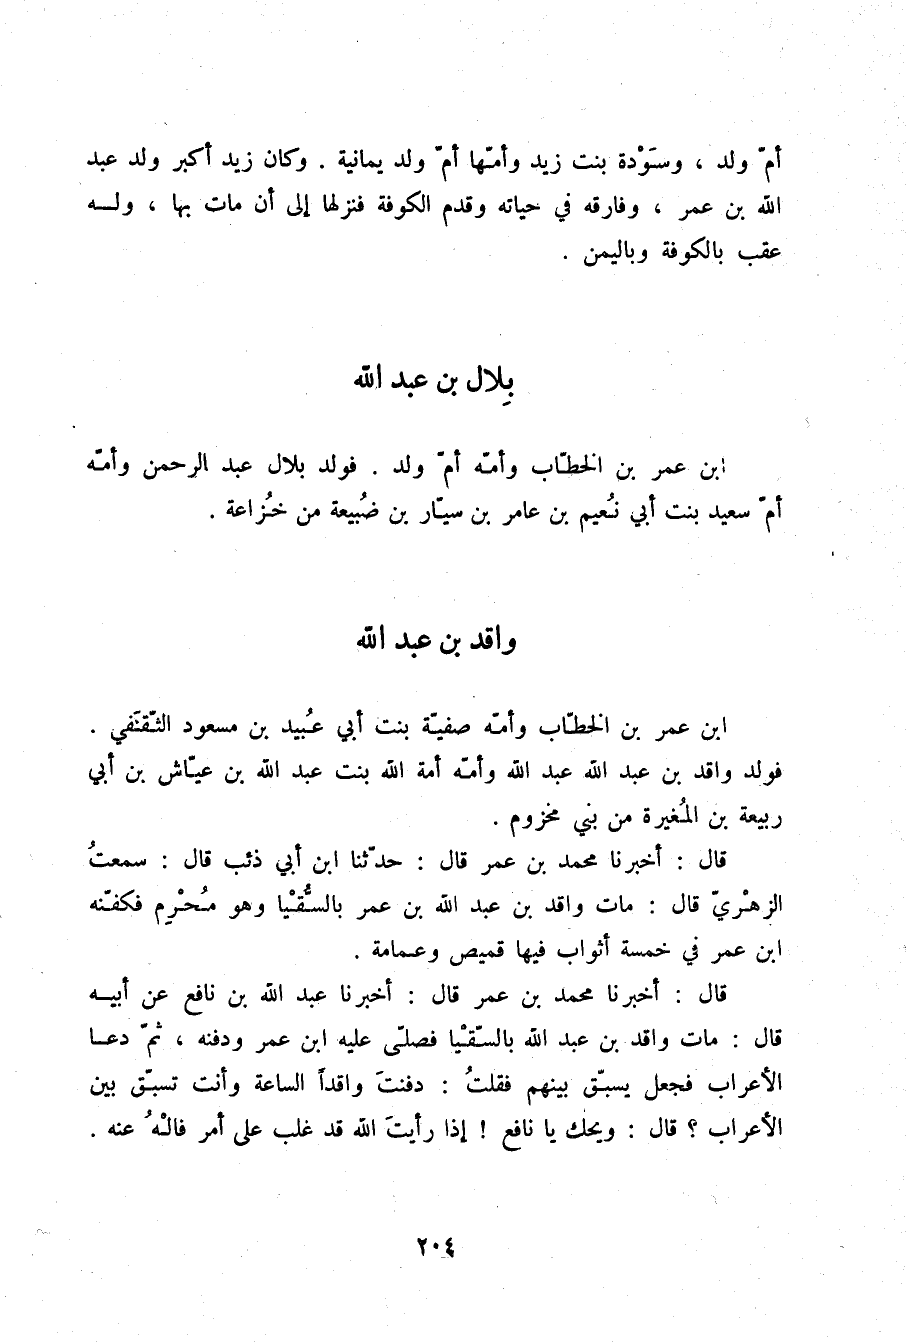 أمّ ولد ، وسَوْدة بنت زيد وأمّها أمّ ولد يمانية . وكان زيد أكبر ولد عبد
الله بن عمر ، وفارقه في حياته وقدم الكوفة فنزلها إلى أن مات بها ، ولـه
عقب بالكوفة وباليمن .
بِلال بن عبد الله
ابن عمر بن الخطّاب وأمّه أمّ ولد . فولد بلال عبد الرحمن وأمّه
أمّ سعيد بنت أبي نُعيم بن عامر بن سيّار بن ضُبيعة من خُزاعة .
واقد بن عبد الله
ابن عمر بن الخطّاب وأمّه صفيّة بنت أبي عُبيد بن مسعود الثّقَفي .
فولد واقد بن عبد الله عبد الله وأمّه أمة الله بنت عبد الله بن عيّاش بن أبي
ربيعة بن المُغيرة من بني مخزوم .
قال : أخبرنا محمد بن عمر قال : حدّثنا ابن أبي ذئب قال : سمعتُ
الزهْريّ قال : مات واقد بن عبد الله بن عمر بالسُّقْيا وهو مُحْرِم فكفّنه
ابن عمر في خمسة أثواب فيها قميص وعمامة .
قال : أخبرنا محمد بن عمر قال : أخبرنا عبد الله بن نافع عن أبيـه
قال : مات واقد بن عبد الله بالسّقْيا فصلّى عليه ابن عمر ودفنه ، ثمّ دعـا
الأعراب فجعل يسبّق بينهم فقلتُ : دفنتَ واقداً الساعة وأنت تسبّق بين
الأعراب ؟ قال : ويحك يا نافع ! إذا رأيتَ الله قد غلب على أمر فالْهُ عنه .
٢٠٤